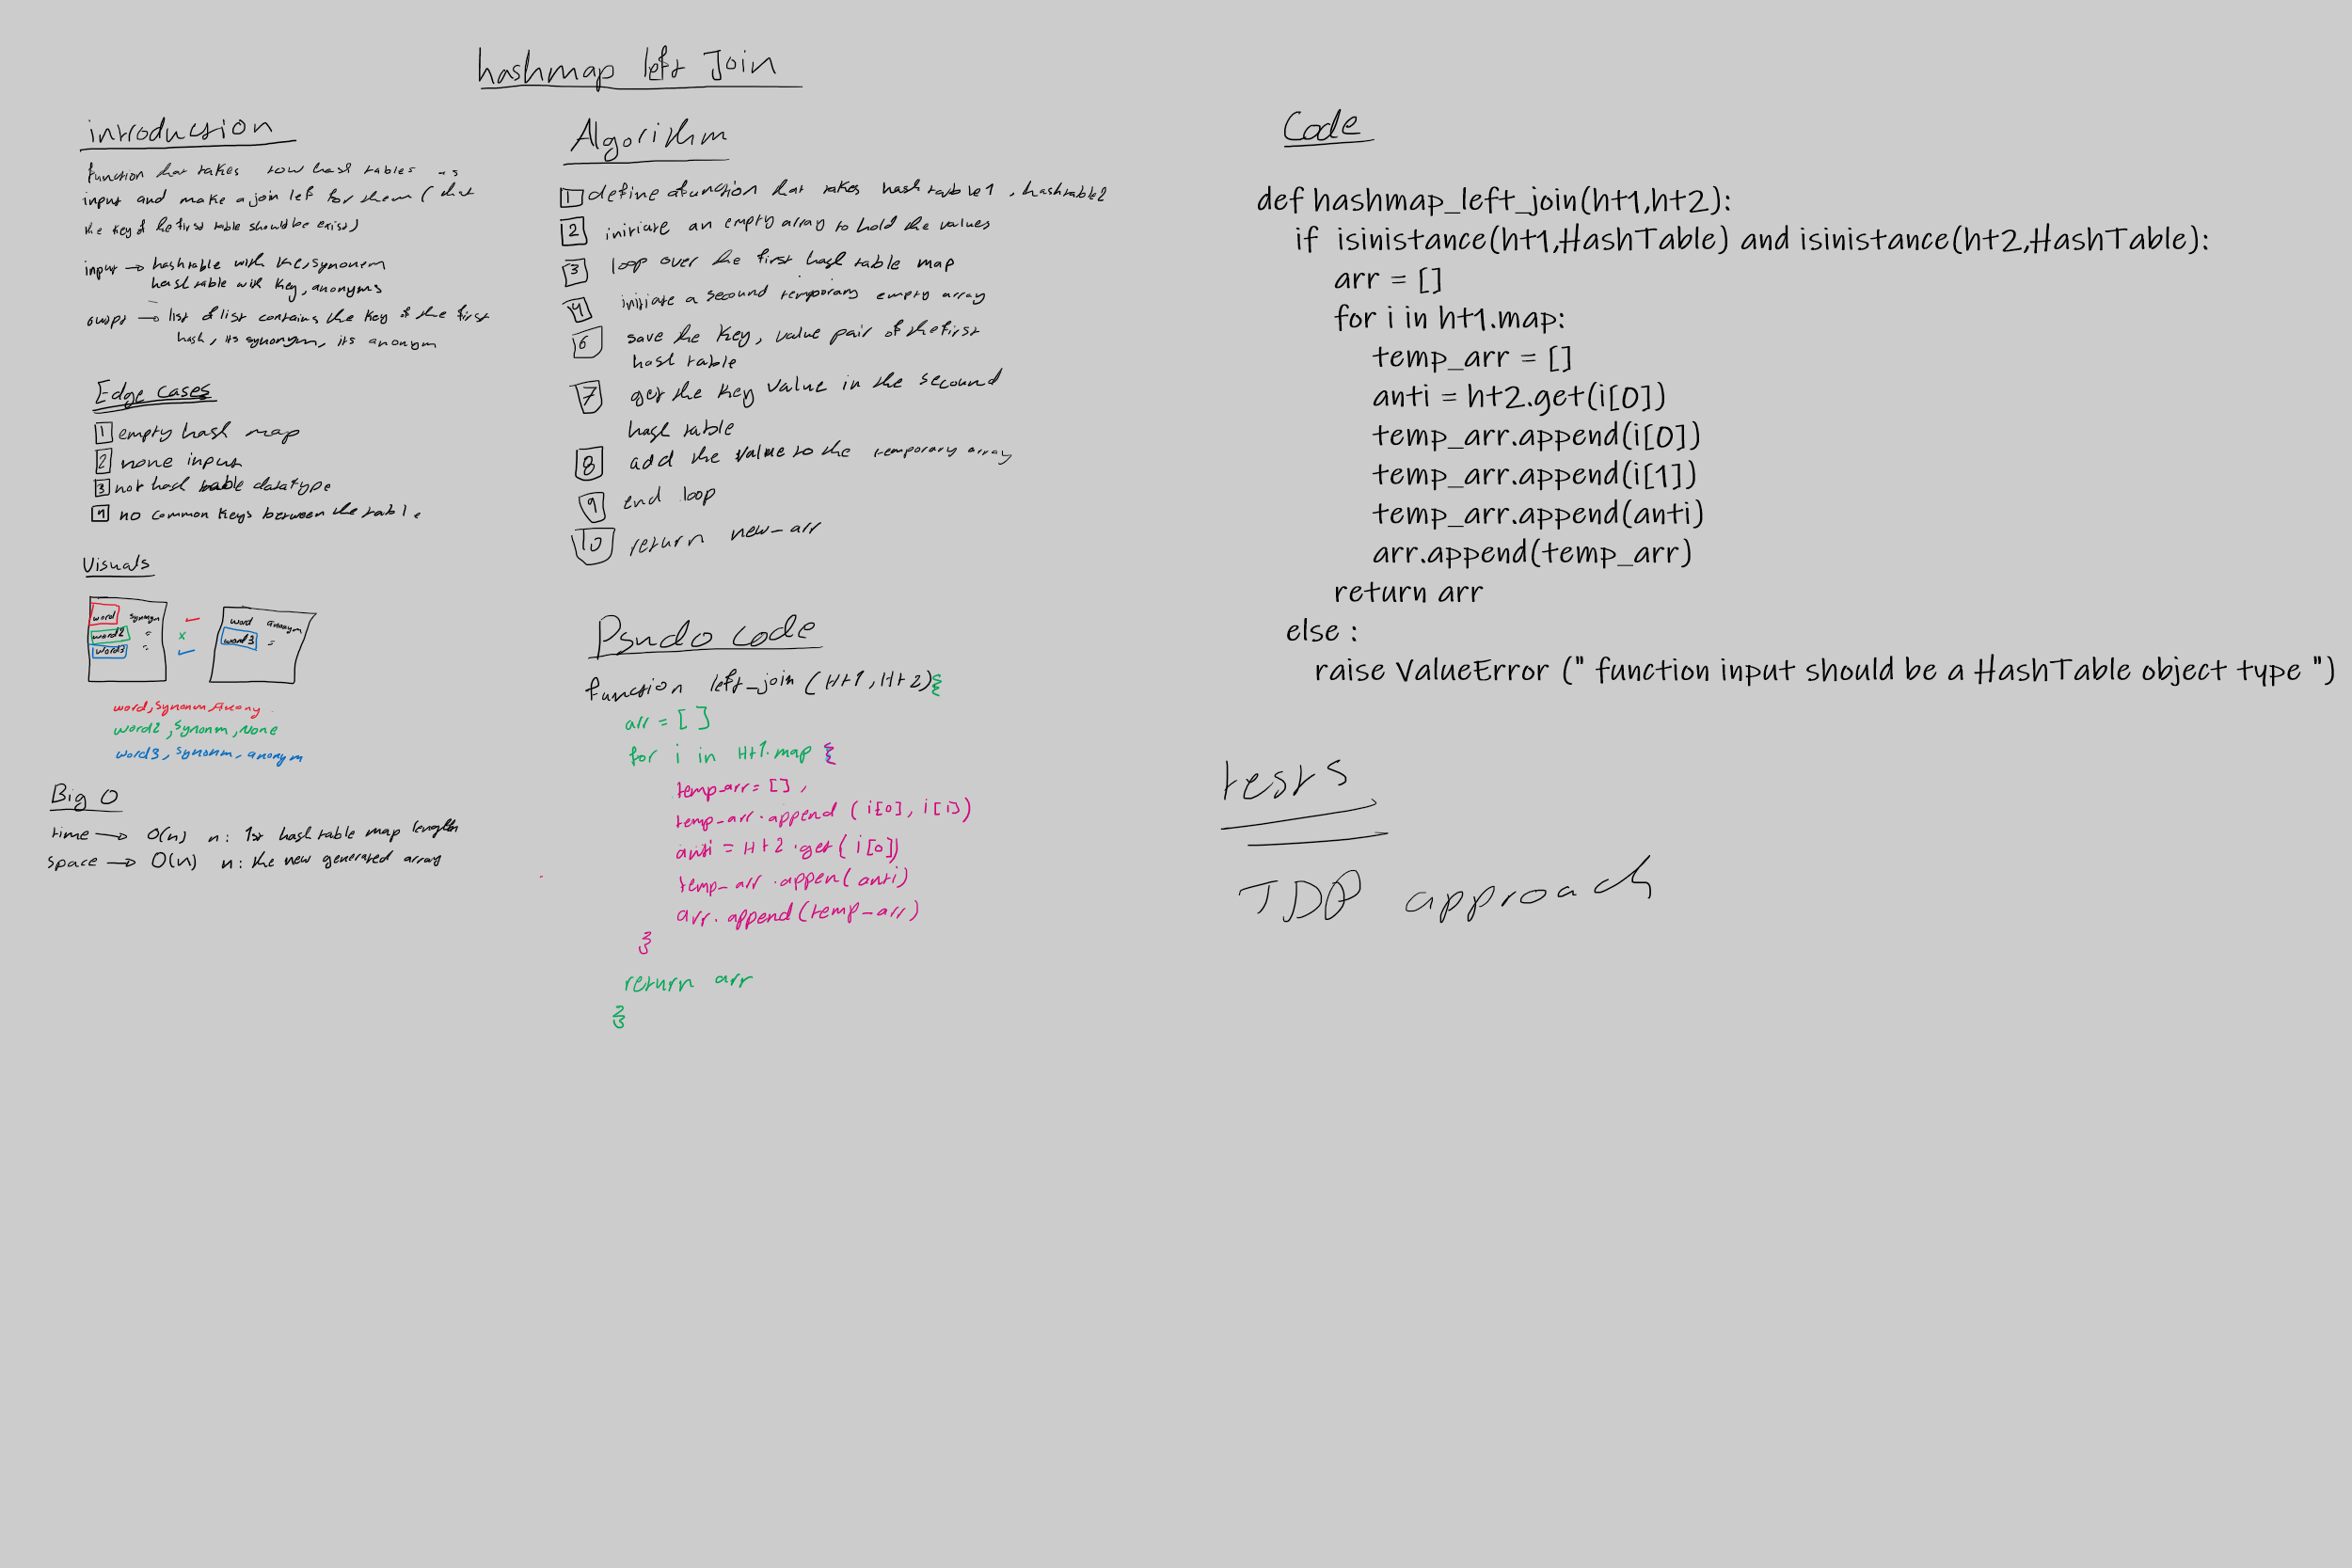 hashmap left Join
introduction
function that takes tow hash tables as
input and make a join left for them (that
the key of the first table should be exist)
input → hashtable with ke, synonem
hash table with key, anonyms
list of list contains the key of the first
hash, its synonym, its anonym
Edge cases
1 empty hash map
2 none input
3 not hash table datatype
4 no common keys between the table
Visuals
word synonym
word2 =
word3 =
word anonym
word3 =
word, synonm, Anony
word2, synonm, None
word3, synonm, anonym
Big O
time → O(n) n: 1st hash table map length
space → O(n) n: the new generated array
Algorithm
1 define a function that takes hash table1, hashtable2
2 initiate an empty array to hold the values
3 loop over the first hash table map
4 initiate a secound temporary empty array
6 save the key, value pair of the first
hash table
7 get the key value in the secound
hash table
8 add the value to the temporary array
9 end loop
10 return new_arr
Psudo code
function left_join (Ht1, Ht2){
arr = []
for i in Ht1.map {
temp_arr = [],
temp_arr.append (i[0], i[1])
anti = Ht2.get( i[0])
temp_arr.appen( anti)
arr.append(temp_arr)
}
return arr
}
Code
def hashmap_left_join(ht1,ht2):
if isinistance(ht1,HashTable) and isinistance(ht2,HashTable):
arr = []
for i in ht1.map:
temp_arr = []
anti = ht2.get(i[0])
temp_arr.append(i[0])
temp_arr.append(i[1])
temp_arr.append(anti)
arr.append(temp_arr)
return arr
else :
raise ValueError (" function input should be a HashTable object type ")
tests
TDD approach